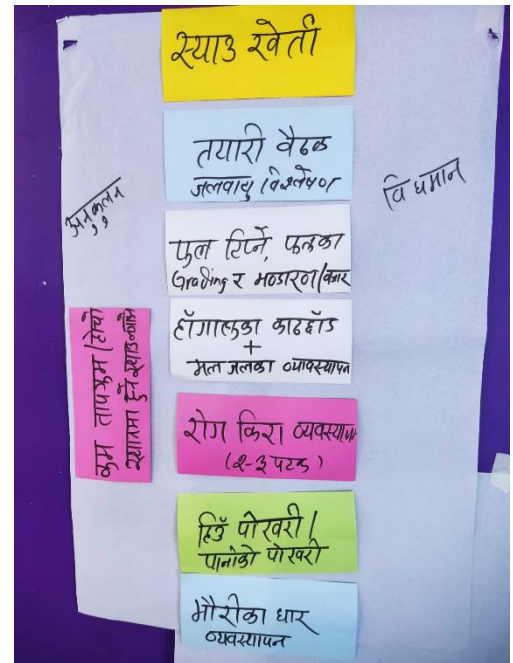 स्याउ खेती
तयारी बैठक
जलवायु विश्लेषण
अनुकूलन
विधमान
फुल टिप्ने, फलका
Grading र भण्डारण/बजार
हाँगाहरुका काटछाँट
+
मल जलका व्यावस्थापन
कम तापक्रम/होचो
स्थानमा हुने स्याउ
रोग किरा व्यवस्थापन
(२-३ पटक)
हिउँ पोखरी/
पानीको पोखरी
मौरीका घार
व्यवस्थापन